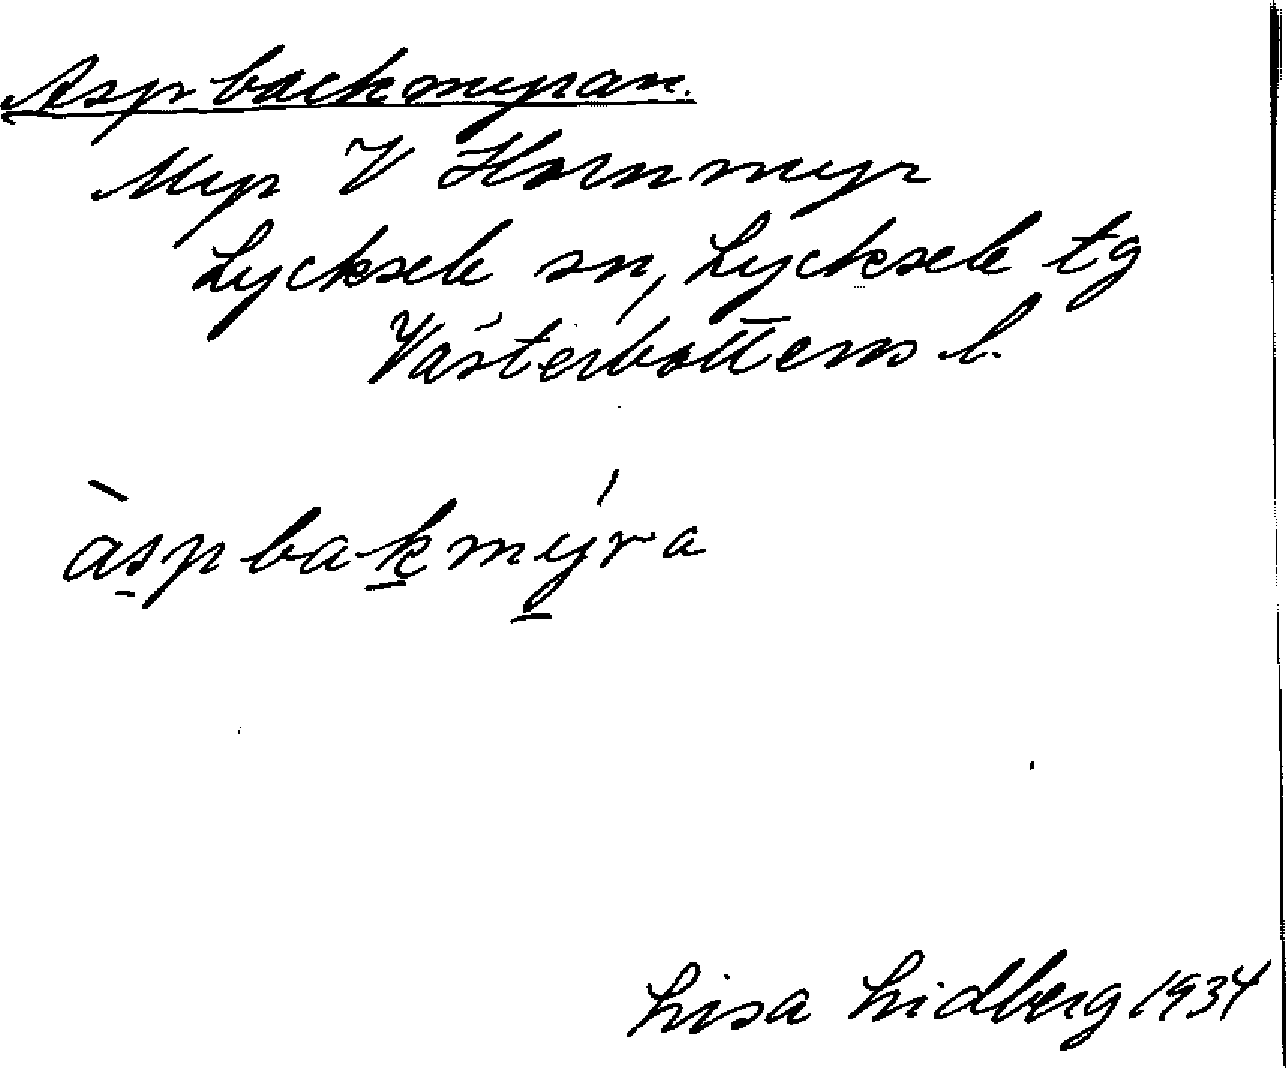 Aspbackmyran.
Myr V Hornmyr
Lycksele sn, Lycksele tg
Västerbottens l.
àspbakmýra
Lisa Lidberg 1934